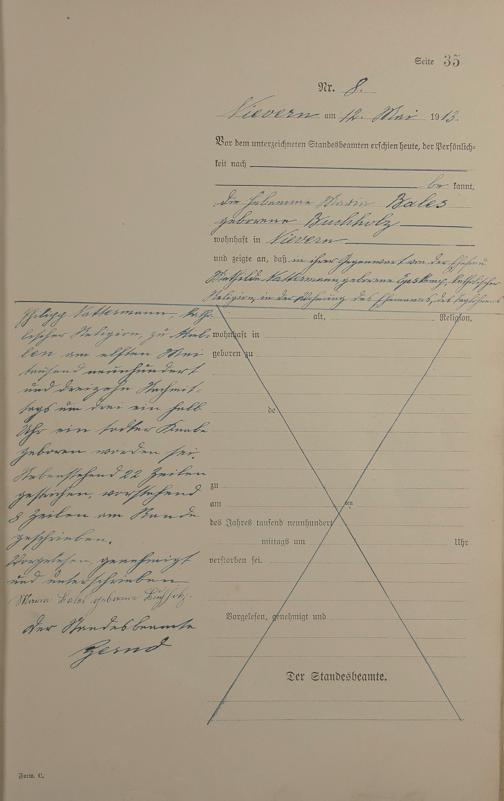 Seite 35
Nr. 8.
Nievern am 12. Mai 1913.
Vor dem unterzeichneten Standesbeamten erschien heute, der Persönlich-
keit nach
be kannt,
die Hebamme Maria Bales
geborene Buchholz
wohnhaft in Nievern
und zeigte an, daß in ihrer Gegenwart von der Ehefrau
Mathilde Nattermann geborene katholischer
Religion, in der Wohnung des Ehemanns, des
Philipp Nattermann, katho-
lischer Religion, zu
am elften Mai
tausend neunhundert
und dreizehn Nachmit-
tags um drei ein halb
Uhr ein todter Knabe
geboren worden sei.
Nebenstehend 22 Zeilen
gestrichen, vorstehend
8 Zeilen am Rande
geschrieben.
Vorgelesen, genehmigt
und unterschrieben
Maria Bales geborene Buchholz.
Der Standesbeamte
alt, Religion,
wohnhaft in
geboren zu
de
zu
am ten
des Jahres tausend neunhundert
mittags um Uhr
verstorben sei.
Vorgelesen, genehmigt und
Der Standesbeamte.
Form. C.